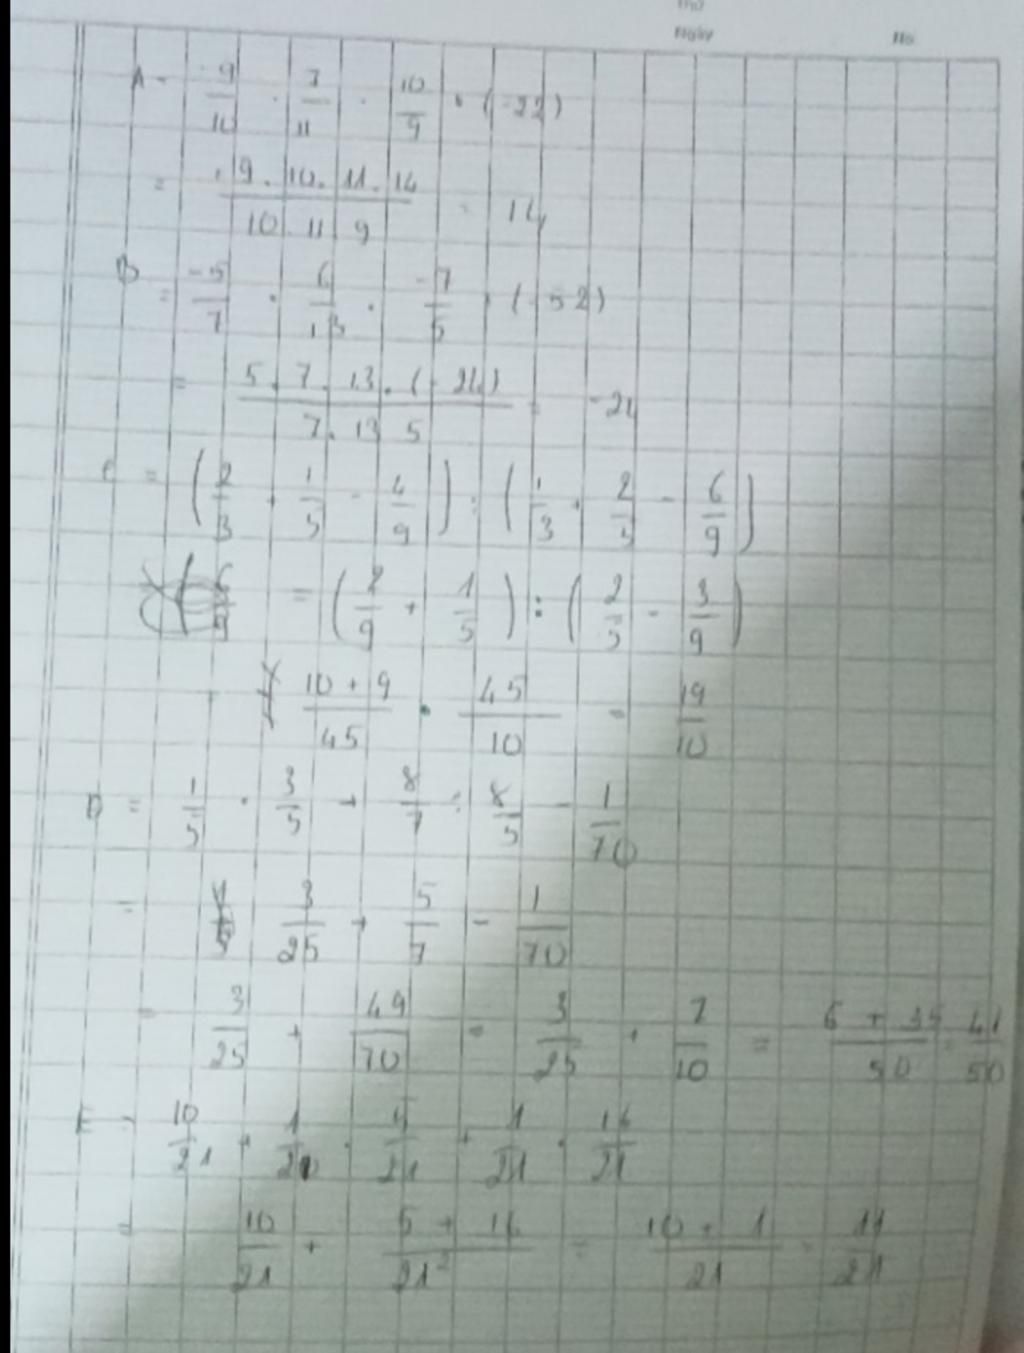 Thứ
Ngày No
A = -9/10 . 7/11 . 10/9 . (-22)
= 9.10.11.14/10.11.9 = 14
B = -5/7 . 6/13 . -7/5 . (-52)
= 5.7.13.(-24)/7.13.5 = -24
C = (2/3 + 1/5 - 4/9) : (1/3 + 2/5 - 6/9)
= (2/9 + 1/5) : (2/5 - 3/9)
10+9/45 . 45/10 = 19/10
D = 1/5 . 3/5 + 8/7 : 8/5 - 1/70
= 3/25 + 5/7 - 1/70
= 3/25 + 49/70 = 3/25 + 7/10 = 6+35/50 = 41/50
E = 10/21 + 1/21 . 5/21 + 1/21 . 16/21
= 10/21 + 5+16/21² = 10+1/21 = 11/21